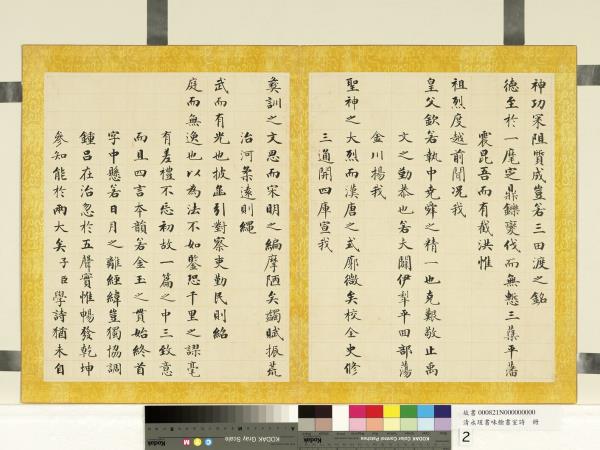 神功冞阻質成豈若三田渡之銘
德至於一麾定鼎鏁褒伐而無慙三葉平藩
震昆吾而有截洪惟
祖烈度越前聞況我
皇父欽若執中堯舜之精一也克艱敬止禹
文之勤恭也若夫闢伊犂平回部蕩
金川揚我
聖神之大烈而漢唐之式廓微矣校全史修
三通開四庫宣我
訓之文思而宋明之編摩陋矣蠲賦振荒
治河柔遠則繩
武而有光也披函引對察吏勤民則紹
庭而無逸也以為法不如鑒恐千里之謬毫
有差禮不忘初故一篇之中三致意
而且四言本韻若金玉之貫始終首
字中懸若日月之離經緯豈獨協調
鍾呂在治忽於五聲實惟暢發乾坤
參知能於兩大矣子臣學詩猶未自
故書 000821N000000000
清永瑆書味餘書室詩 冊
2
KODAK Gray Scale
KODAK Color Control Patches
Kodak